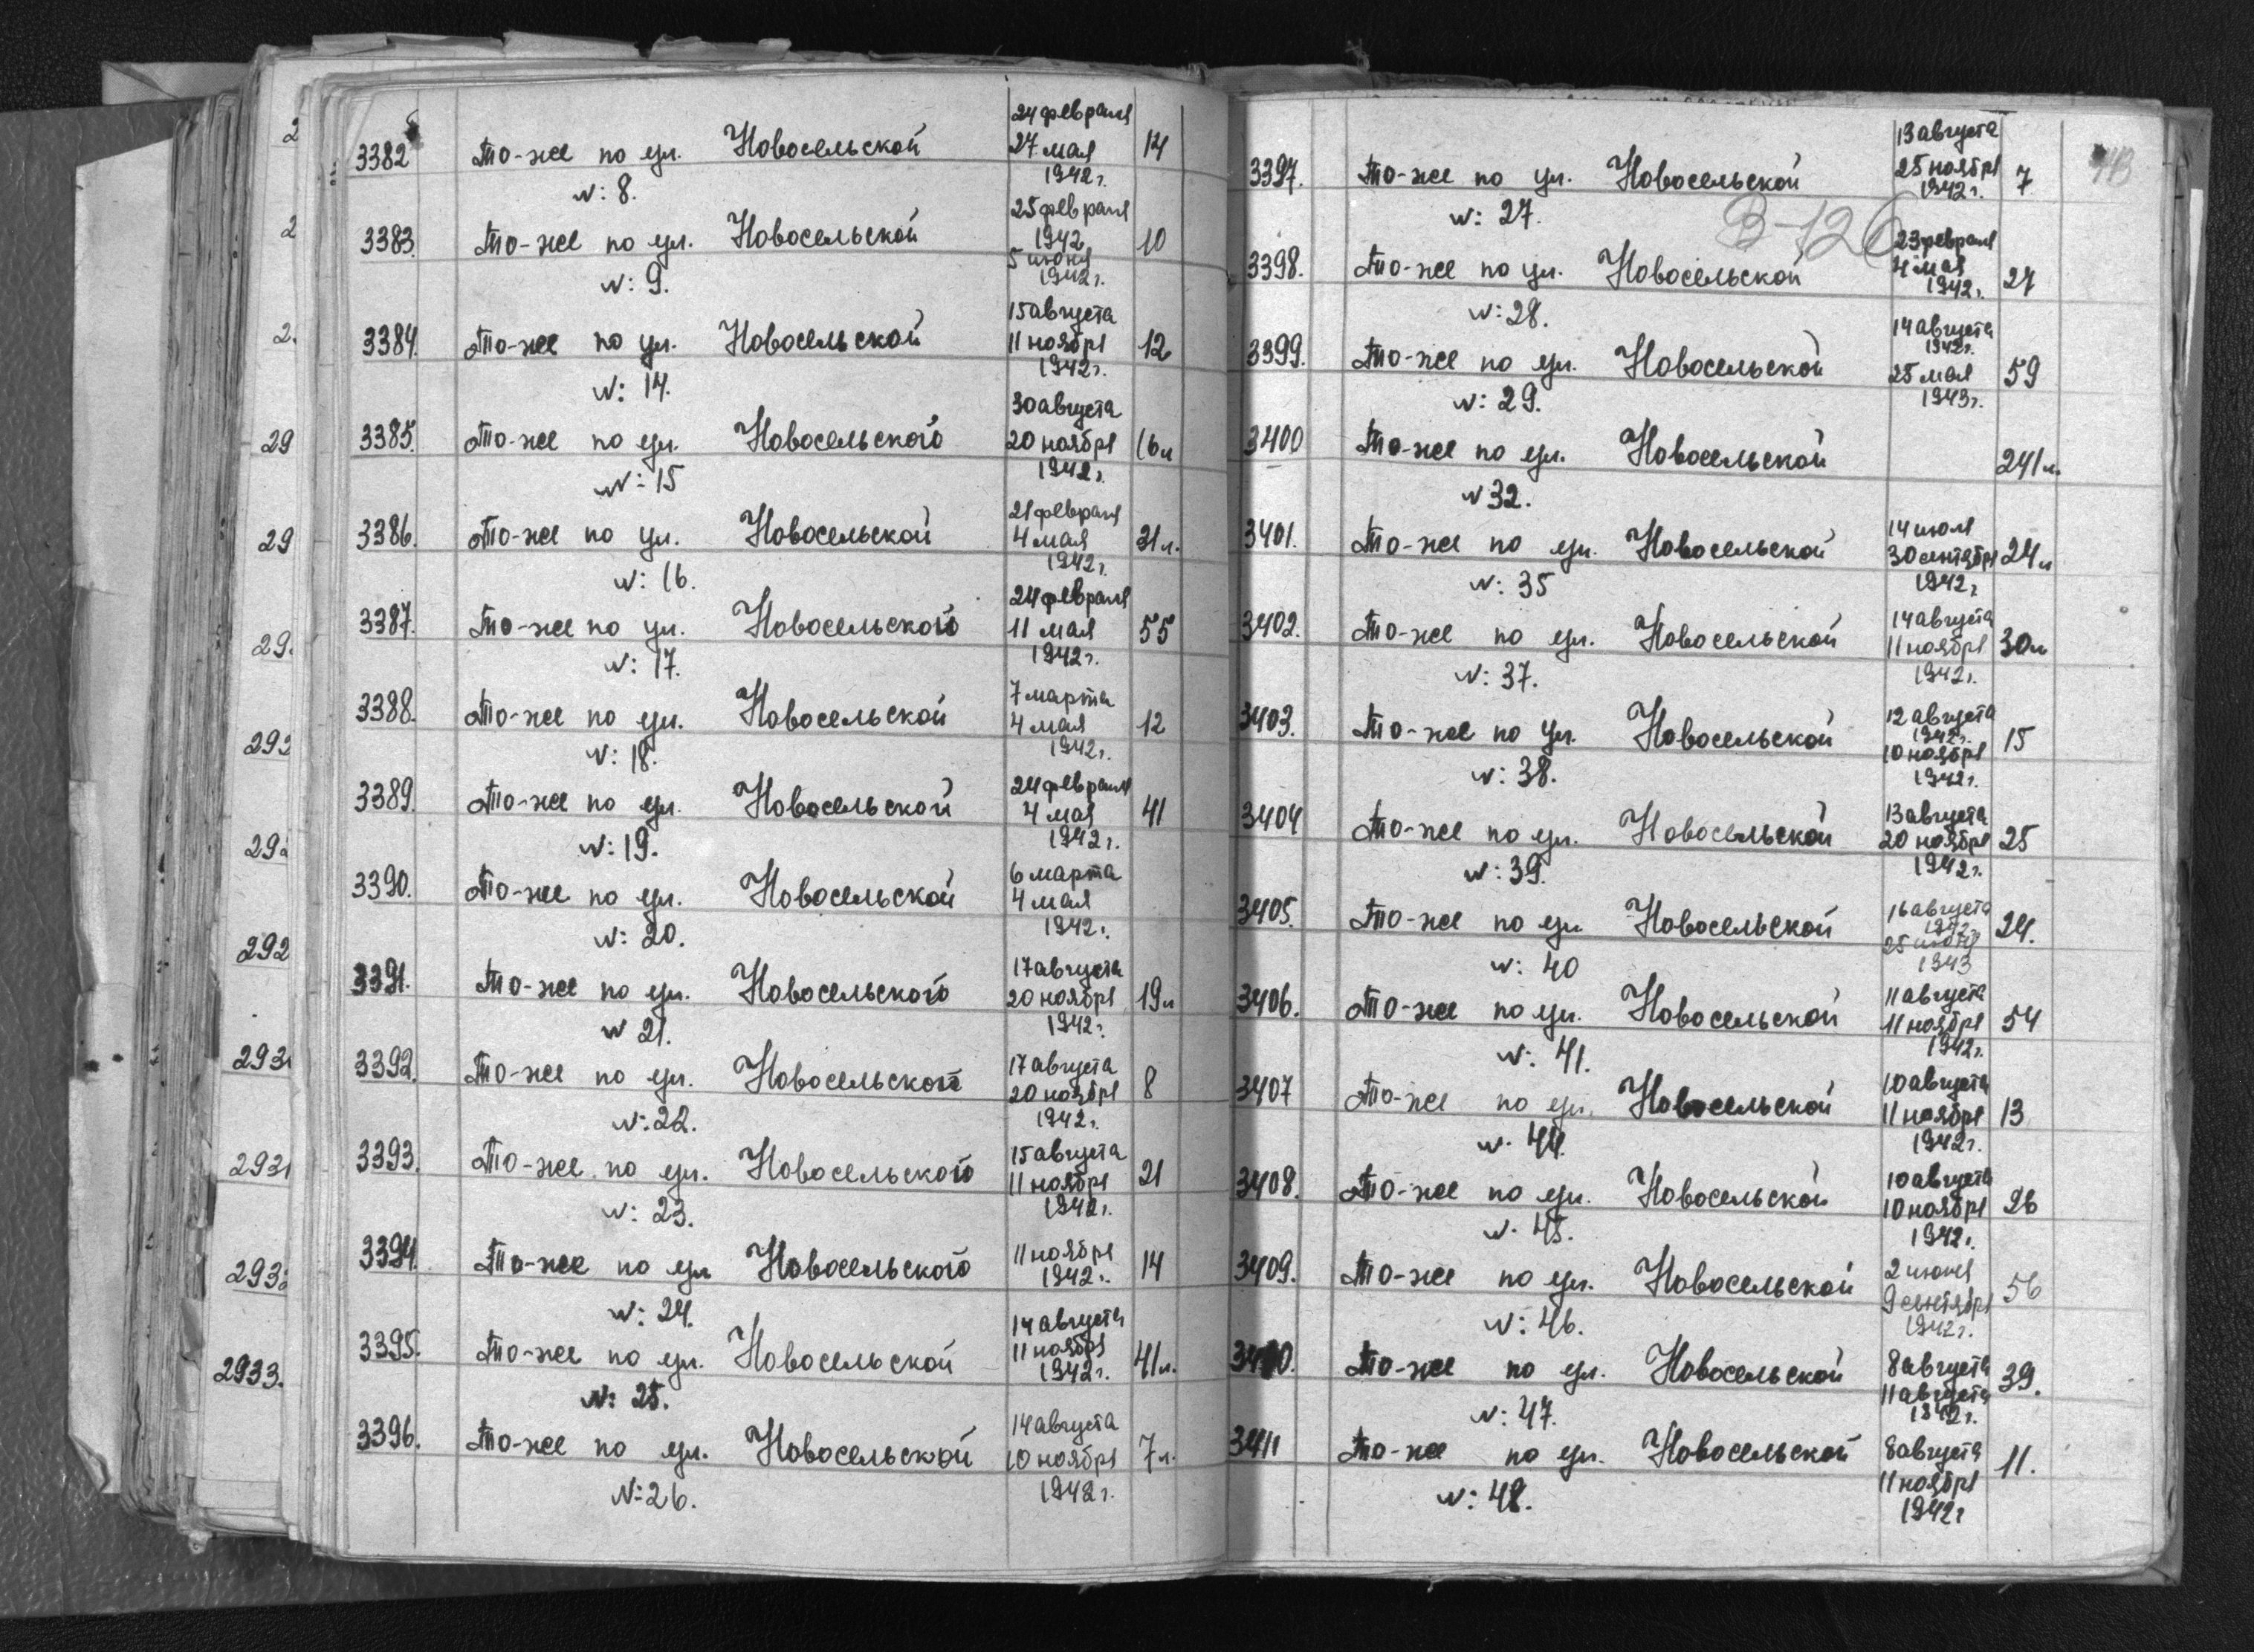 24 февраля
3382 То-же по ул. Новосельской 27 мая 14
N: 8. 1942 г.
25 февраля
3383. То-же по ул. Новосельской 1942 10
5 июня
N: 9. 1942 г.
15 августа
3384. То-же по ул. Новосельской 11 ноября 12
N: 14. 1942 г.
30 августа
3385. То-же по ул. Новосельского 20 ноября 16 л
N: 15 1942 г.
21 февраля
3386. То-же по ул. Новосельской 4 мая 31 л.
N: 16. 1942 г.
24 февраля
3387. То-же по ул. Новосельского 11 мая 55
N: 17. 1942 г.
7 марта
3388. То-же по ул. Новосельской 4 мая 12
N: 18. 1942 г.
24 февраля
3389. То-же по ул. Новосельской 4 мая 41
N: 19. 1942 г.
6 марта
3390. То-же по ул. Новосельской 4 мая
N: 20. 1942 г.
17 августа
3391. То-же по ул. Новосельского 20 ноября 19 л
N 21. 1942 г.
17 августа
3392. То-же по ул. Новосельского 20 ноября 8
N: 22. 1942 г.
15 августа
3393. То-же по ул. Новосельского 11 ноября 21
N: 23. 1942 г.
11 ноября
3394. То-же по ул Новосельского 1942 г. 14
N: 24.
14 августа
3395. То-же по ул. Новосельской 11 ноября 41 л.
N: 25. 1942 г.
14 августа
3396. То-же по ул. Новосельской 10 ноября 7 л.
N: 26. 1942 г.
13 августа
3397. То-же по ул. Новосельской 25 ноября 7
N: 27. 1942 г.
В-126
23 февраля
3398. То-же по ул. Новосельской 4 мая 27
N: 28. 1942 г.
14 августа
1942 г.
3399. То-же по ул. Новосельской 25 мая 59
N: 29. 1943 г.
3400 То-же по ул. Новосельской 241 л.
N 32.
14 июля
3401. То-же по ул. Новосельской 30 сентября 24 л
N: 35 1942 г
14 августа
3402. То-же по ул. Новосельской 11 ноября 30 л
N: 37. 1942 г.
12 августа
1942 г.
3403. То-же по ул. Новосельской 10 ноября 15
N: 38. 1942 г.
13 августа
3404 То-же по ул. Новосельской 20 ноября 25
N: 39. 1942 г.
16 августа
1942 г.
3405. То-же по ул. Новосельской 24.
N: 40 1943
11 августа
3406. То-же по ул. Новосельской 11 ноября 54
N: 41. 1942 г.
10 августа
3407 То-же по ул. Новосельской 11 ноября 13
N. 44. 1942 г.
10 августа
3408. То-же по ул. Новосельской 10 ноября 26
N. 45. 1942 г.
2 июня
3409. То-же по ул. Новосельской 9 сентября 56
N: 46. 1942 г.
8 августа
3410. То-же по ул. Новосельской 11 августа 39.
N: 47. 1942 г.
8 августа
3411 То-же по ул. Новосельской 11 ноября 11.
N: 48. 1942 г